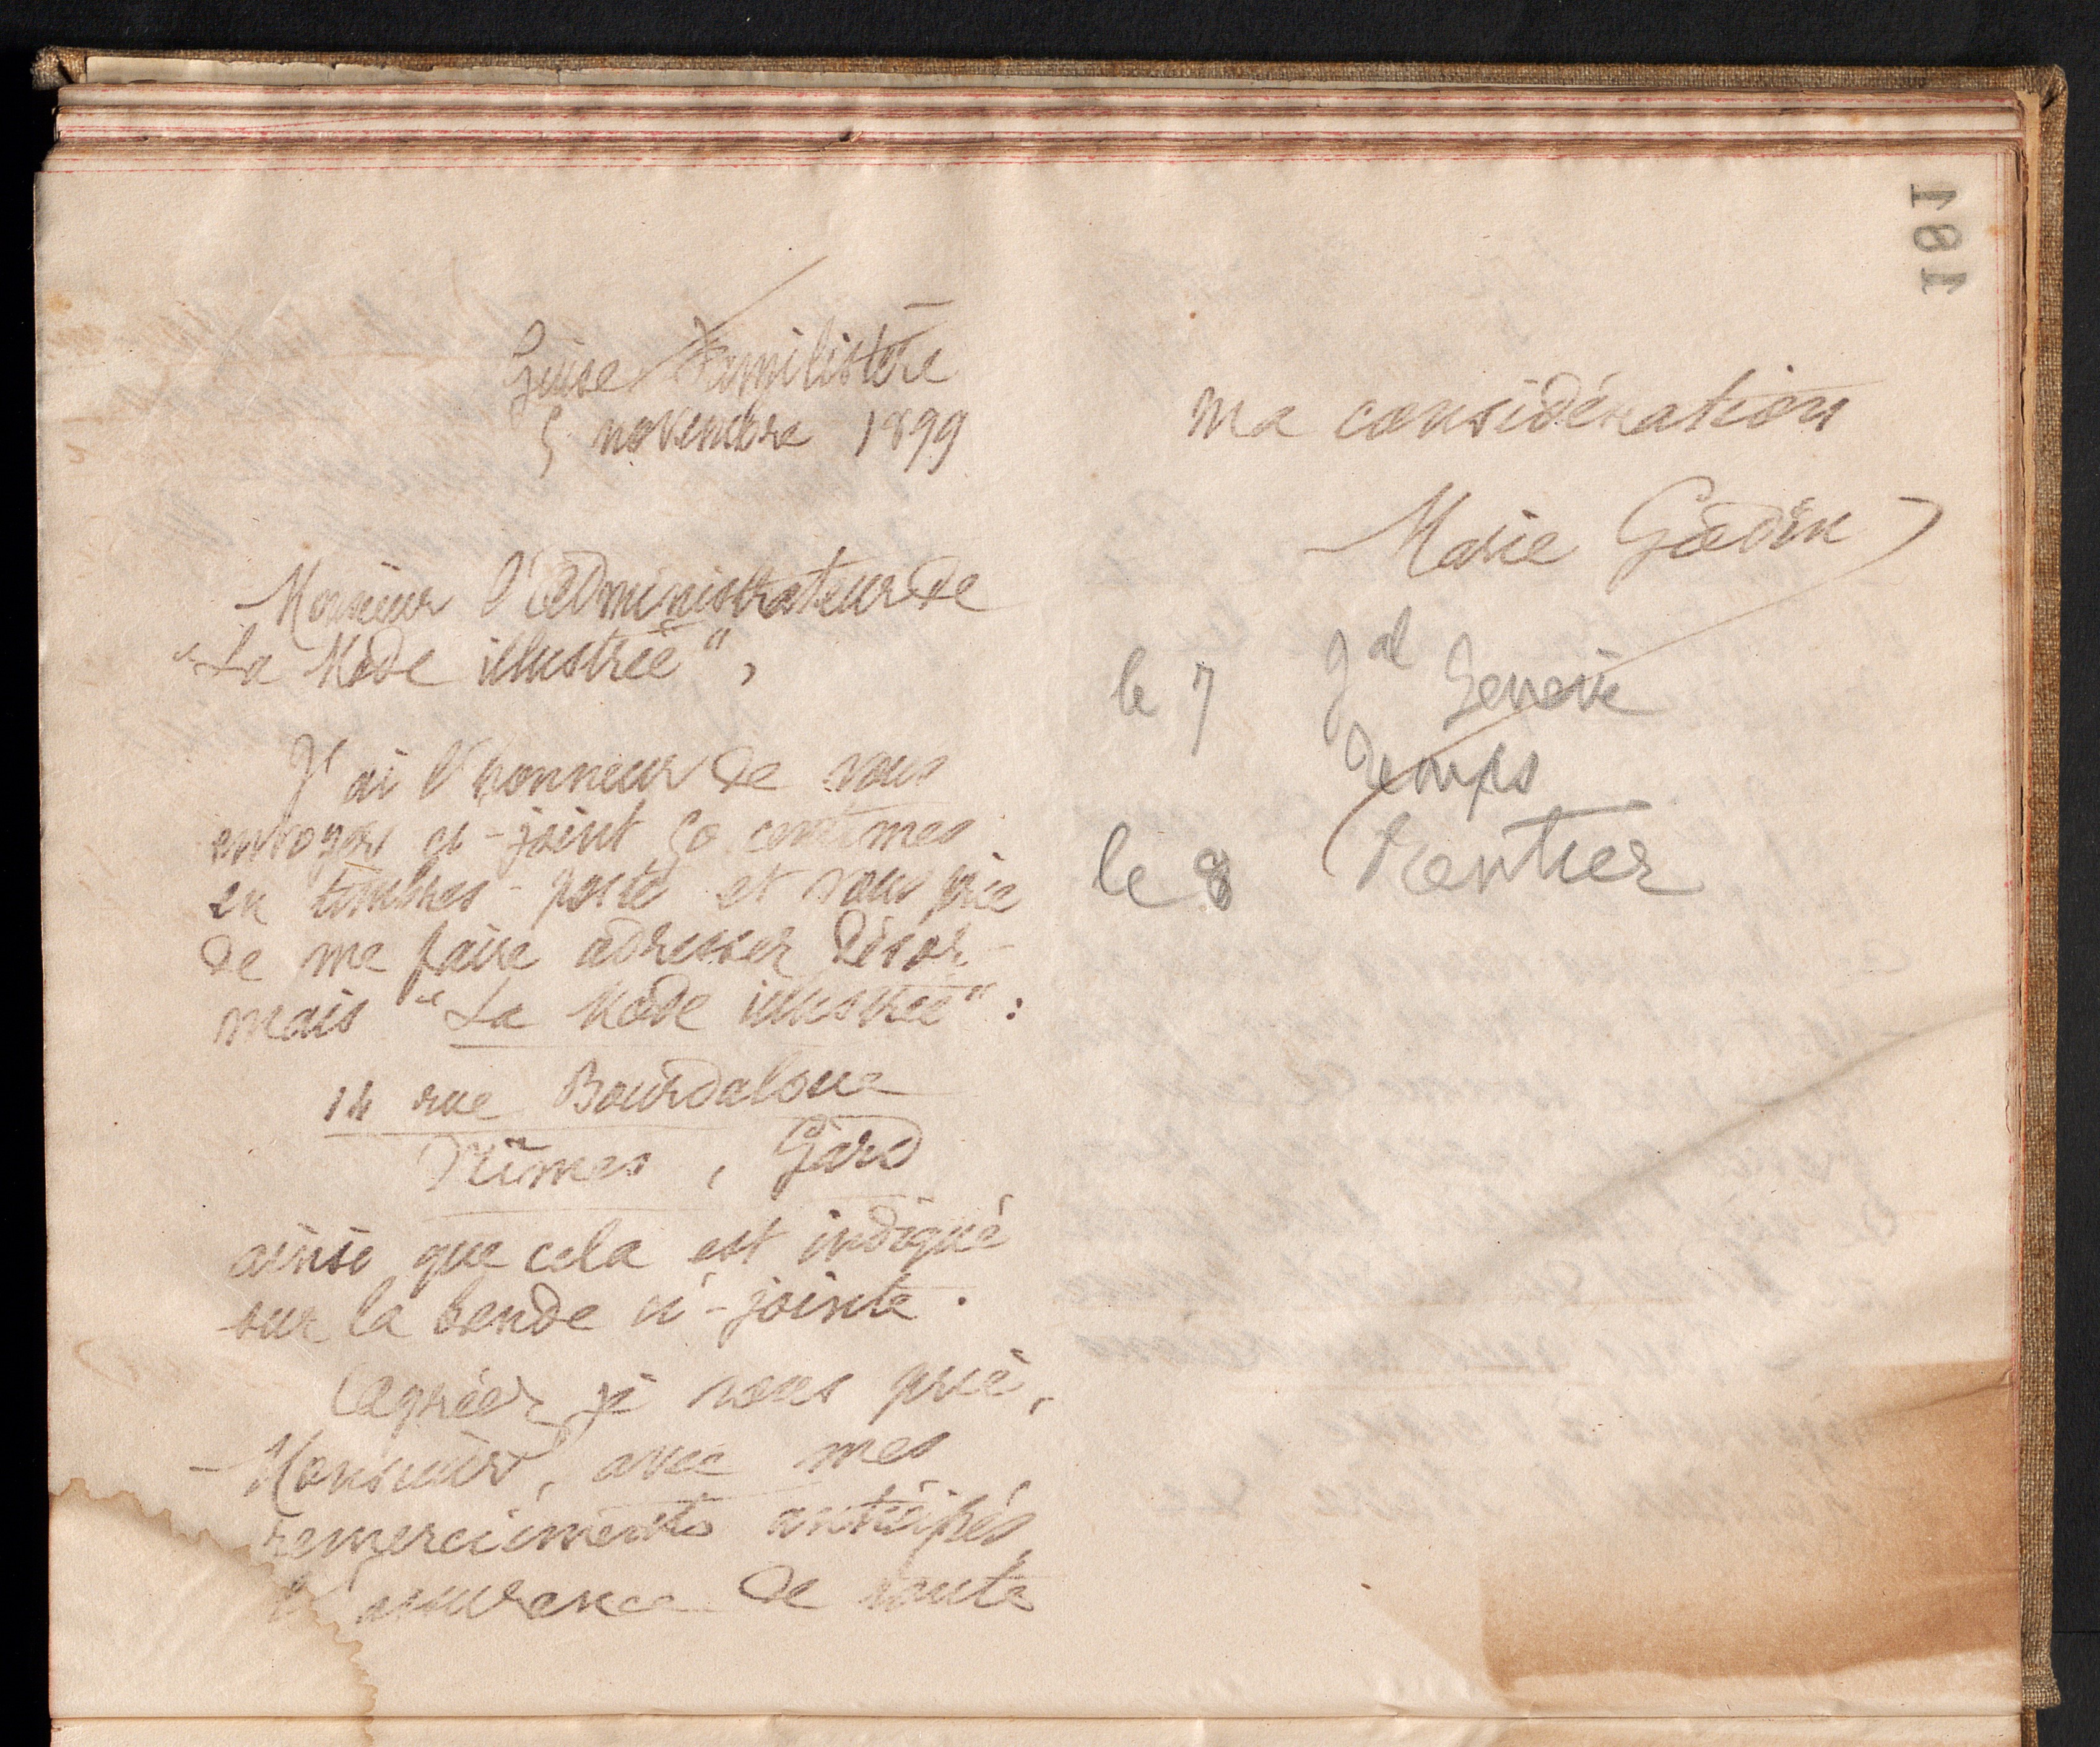 181
Guise Familistère
5 novembre 1899
Monsieur l'administrateur de
"La Mode illustrée",
J'ai l'honneur de vous
envoyer ci-joint 50 centimes
en timbres-poste et vous prie
de me faire adresser désor-
mais "La Mode illustrée" :
14 rue Bourdaloue
Nîmes, Gard
ainsi que cela est indiqué
sur la bande ci-jointe.
Agréer, je vous prie,
Monsieur, avec mes
remerciements anticipés,
l'assurance de toute
ma considération
Marie Godin
le 7 Jal Genève
Temps
le 8